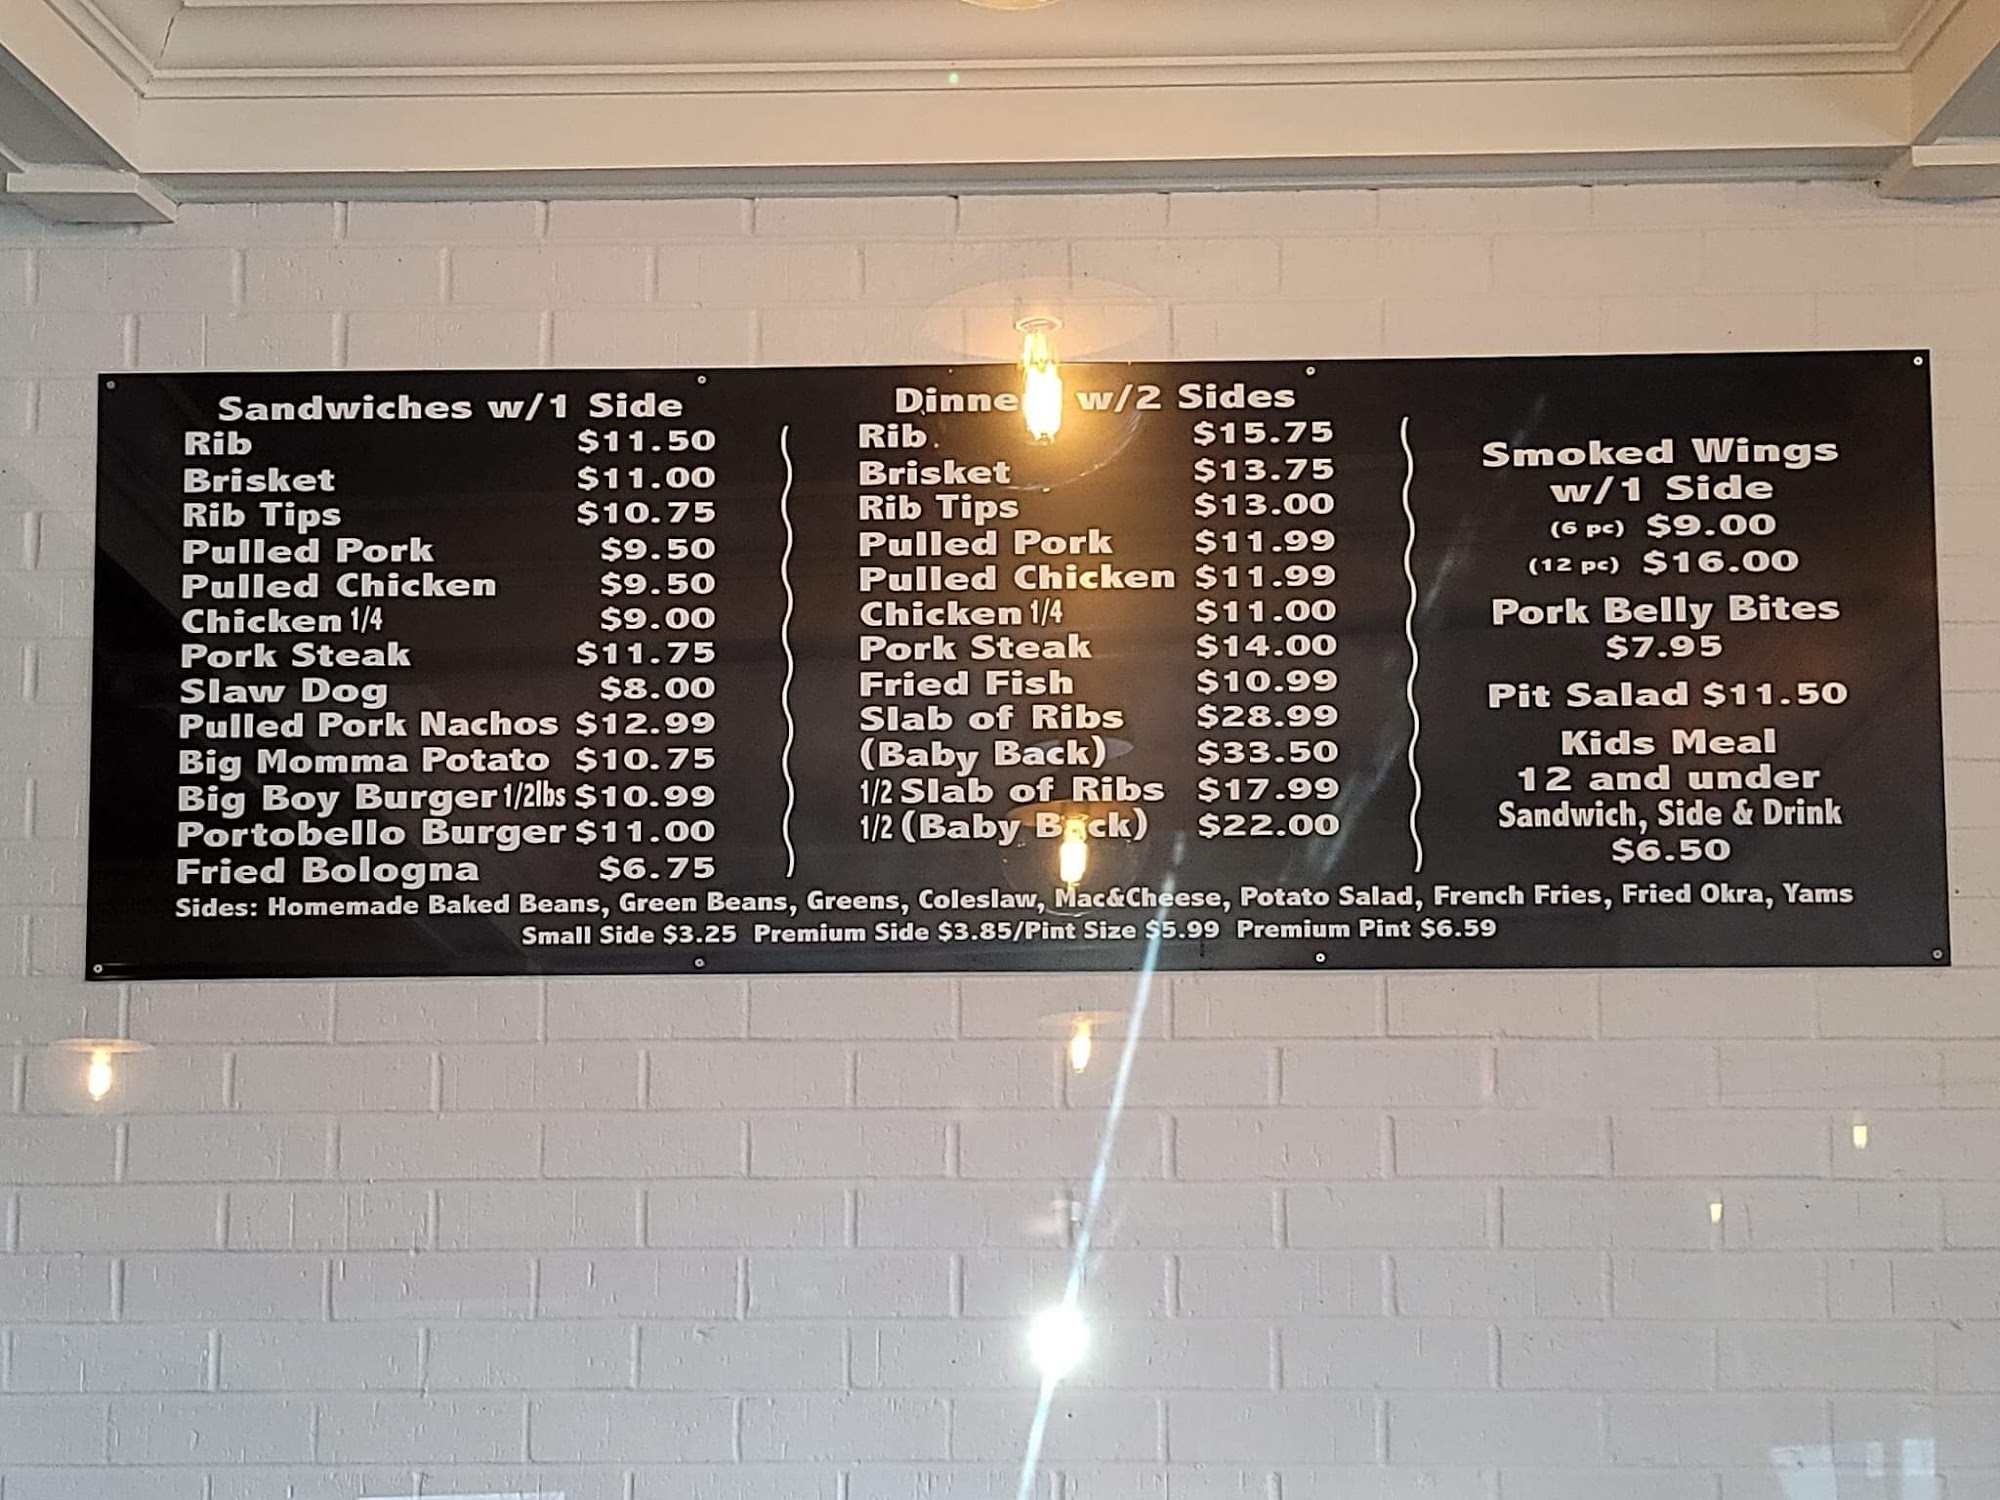 Sandwiches w/1 Side
Rib $11.50
Brisket $11.00
Rib Tips $10.75
Pulled Pork $9.50
Pulled Chicken $9.50
Chicken 1/4 $9.00
Pork Steak $11.75
Slaw Dog $8.00
Pulled Pork Nachos $12.99
Big Momma Potato $10.75
Big Boy Burger 1/2lbs $10.99
Portobello Burger $11.00
Fried Bologna $6.75
w/2 Sides
Rib $15.75
Brisket $13.75
Rib Tips $13.00
Pulled Pork $11.99
Pulled Chicken $11.99
Chicken 1/4 $11.00
Pork Steak $14.00
Fried Fish $10.99
Slab of Ribs $28.99
(Baby Back) $33.50
1/2 Slab of Ribs $17.99
1/2 (Baby Back) $22.00
Smoked Wings
w/1 Side
(6 pc) $9.00
(12 pc) $16.00
Pork Belly Bites
$7.95
Pit Salad $11.50
Kids Meal
12 and under
Sandwich, Side & Drink
$6.50
Sides: Homemade Baked Beans, Green Beans, Greens, Coleslaw, Mac&Cheese, Potato Salad, French Fries, Fried Okra, Yams
Small Side $3.25 Premium Side $3.85/Pint Size $5.99 Premium Pint $6.59